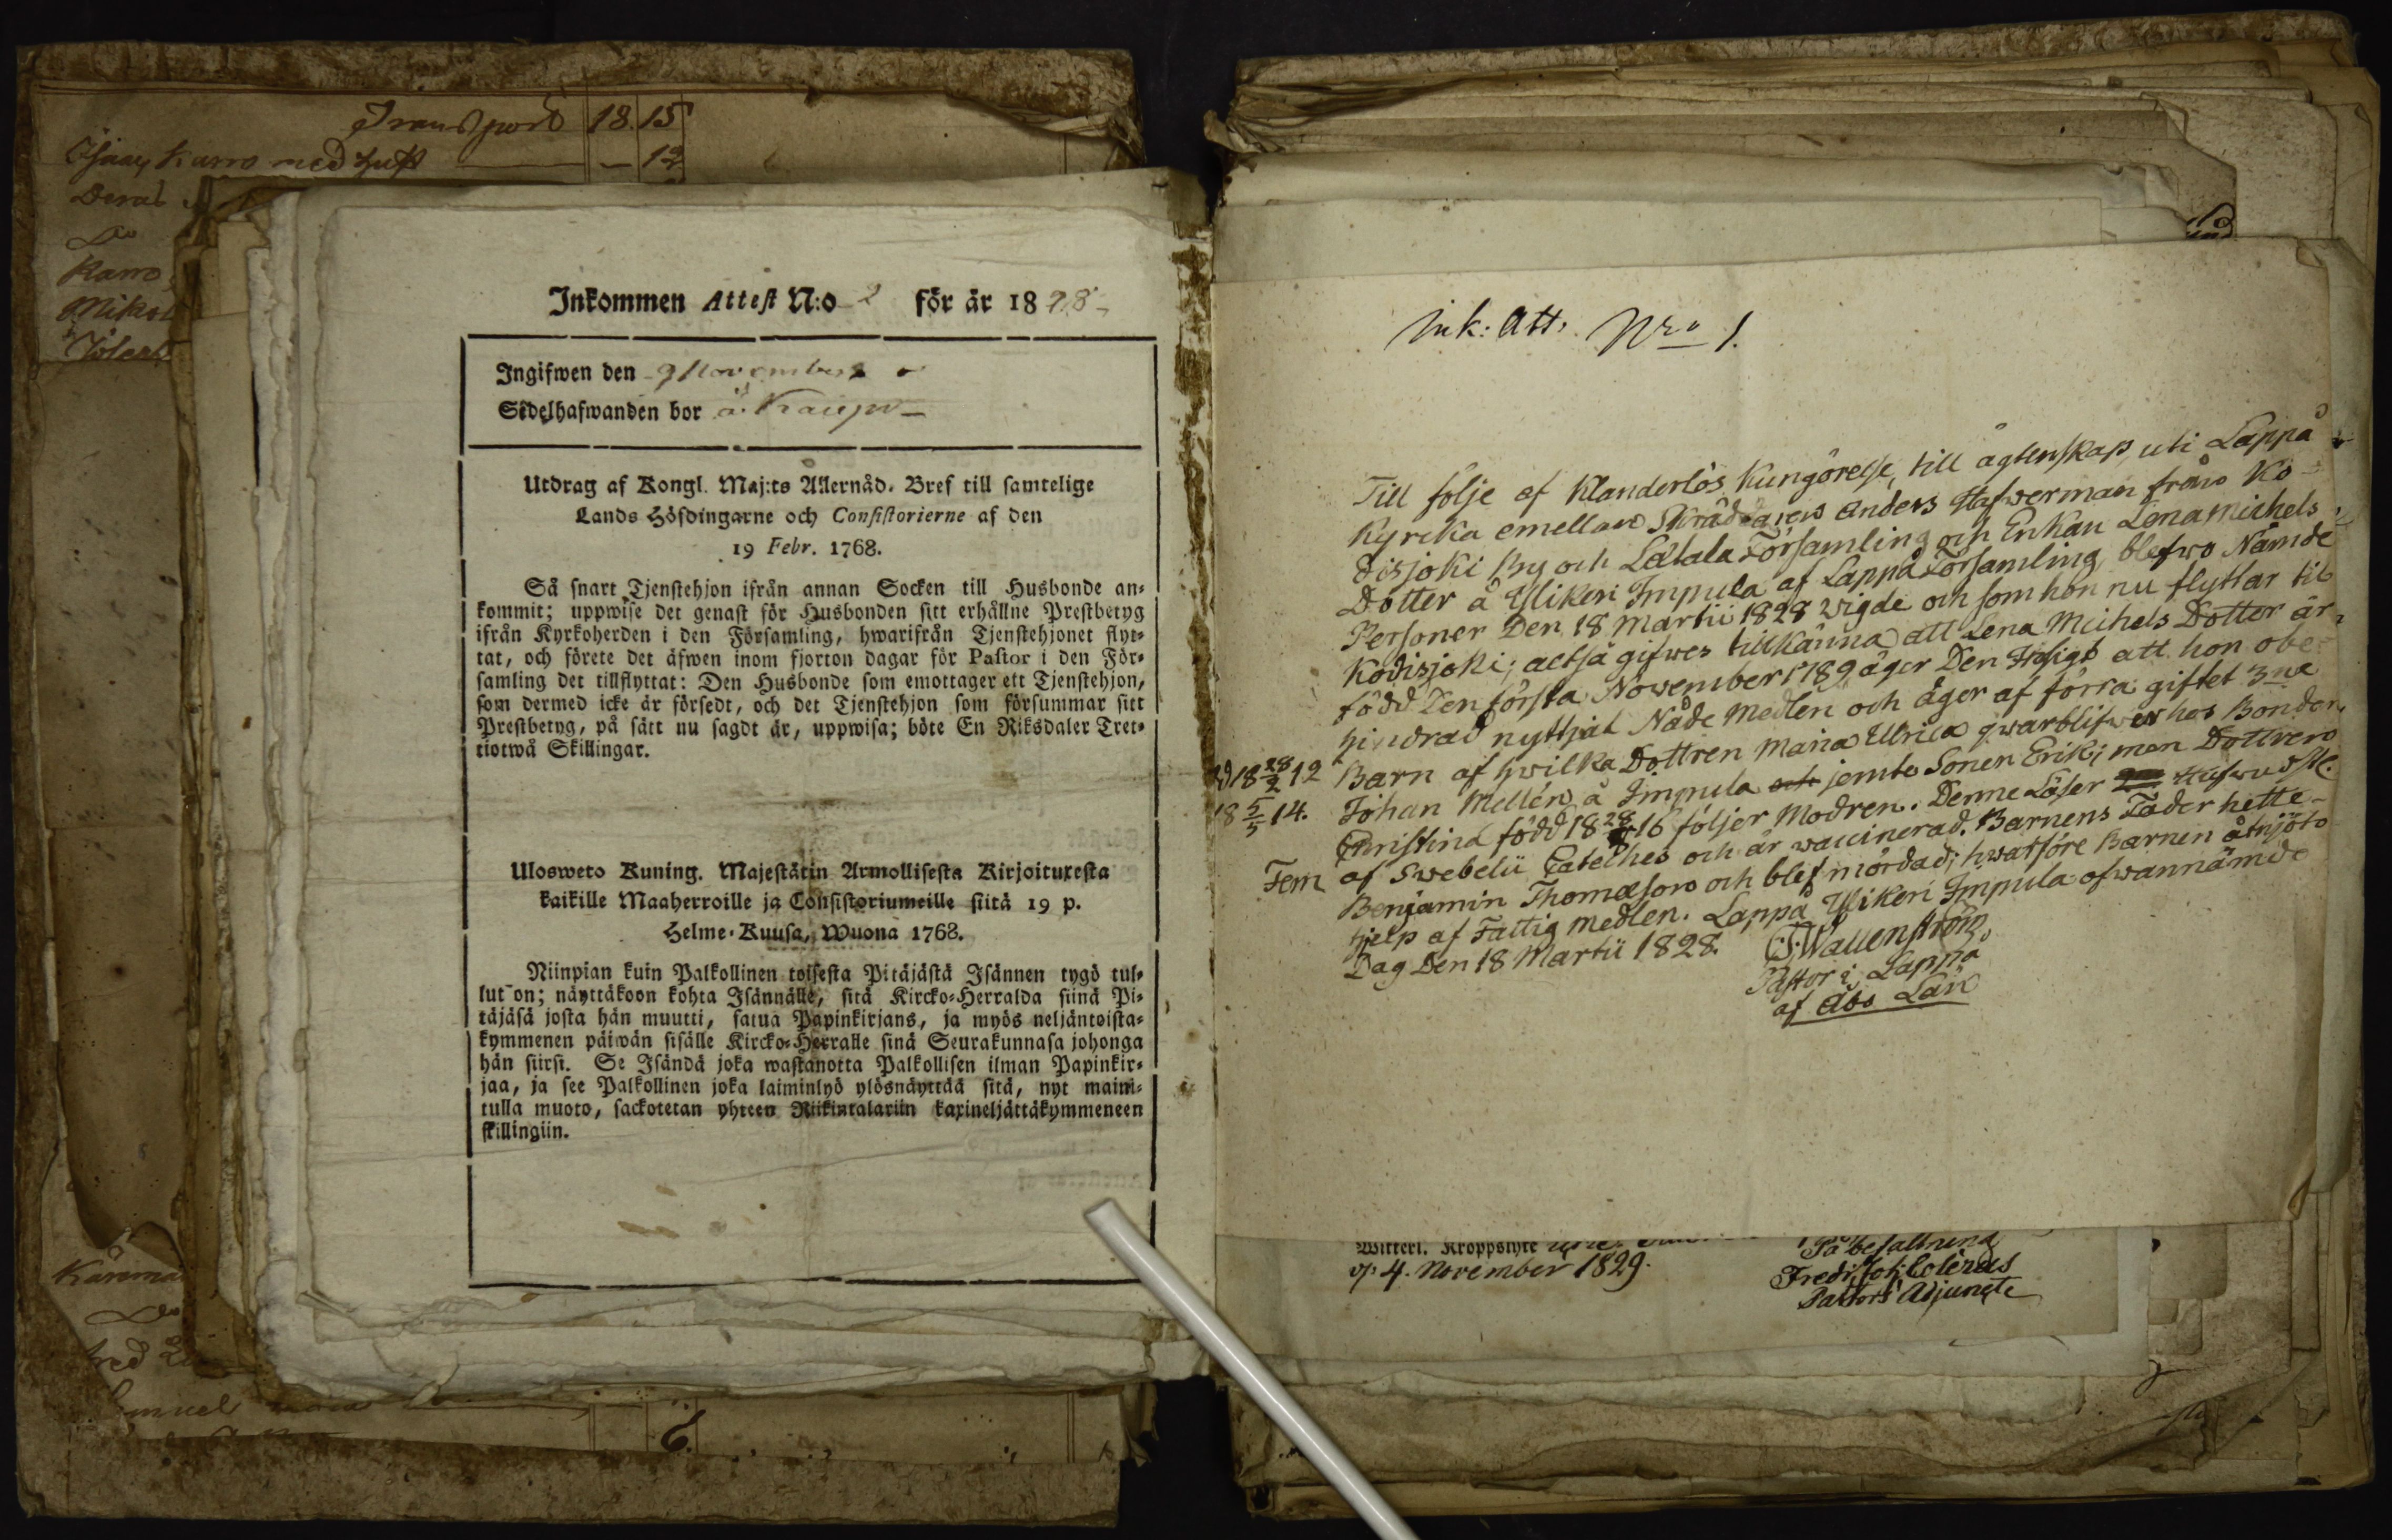 Transport 18. 15
Karro med Hust — 12
Karro
Inkommen Attest N:o 2 för år 1828
Ingifwen den 9 November
Sedelhafwanden bor å Kaupo
Utdrag af Kongl. Maj:ts Allernåd. Bref till samtelige
Lands Höfdingarne och Consistorierne af den
19 Febr. 1768.
Så snart Tjenstehjon ifrån annan Socken till Husbonde an-
kommit; uppwise det genast för Husbonden sitt erhållne Prestbetyg
ifrån Kyrkoherden i den Församling, hwarifrån Tjenstehjonet flyt-
tat, och förete det äfwen inom fjorton dagar för Pastor i den För-
samling det tillflyttat: Den Husbonde som emottager ett Tjenstehjon,
som dermed icke är försedt, och det Tjenstehjon som försummar sitt
Prestbetyg, på sätt nu sagdt är, uppwisa; böte En Riksdaler Tret-
tiotwå Skillingar.
Ulosweto Kuning. Majestätin Armollisesta Kirjoituxesta
kaikille Maaherroille ja Consistoriumeille siitä 19 p.
Helme-Kuusa, Wuona 1768.
Niinpian kuin Palkollinen toisesta Pitäjästä Isännen tygö tul-
lut on; näyttäkoon kohta Isännälle, sitä Kircko-Herralda siinä Pi-
täjäsä josta hän muutti, satua Papinkirjans, ja myös neljäntoista-
kymmenen päiwän sisälle Kircko-Herralle sinä Seurakunnasa johonga
hän siirsi. Se Isändä joka wastanotta Palkollisen ilman Papinkir-
jaa, ja see Palkollinen joka laiminlyö ylösnäyttää sitä, nyt maini-
tulla muoto, sackotetan yhteen Riikintalariin kaxineljättäkymmeneen
skillingiin.
Ink: Att: Nro 1.
Till följe af Klanderlös Kungörelse, till ägtenskap, uti Lappå
Kyrcka emellan Skräddaren Anders Hafwerman från Ko-
disjoki By och Letala Församling och Enkan Lena Michels
Dotter å Ylikeri Impula af Lappå Församling, blefwo Nämde
Personer Den 18 Martii 1828 wigde och som hon nu flyttar til
Kodisjoki; altså gifwes tillkänna att Lena Michels Dotter är
född Den första November 1789 äger Den Insigt att hon obe-
hindrad nyttjat Nåde Medlen och äger af förra giftet 3ne
18 28/2 12 Barn af hwilka Dottren Maria Ulrica qwarblifwer hos Bonden
18 5/5 14. Johan Mellén å Impula och jemte Sonen Erik; men Dottren
Christina född 18 28 16 följer Modren. Denne Läser Hufwudst.
Fem af Swebelii Cateches och är waccinerad. Barnens Fader hette
Benjamin Thomasson och blef mördad; hwarföre Barnen åtnjöto
hjelp af Fattig medlen. Lappå Ylikeri Impula ofwannämde
Dag Den 18 Martii 1828.
Wallenström
Pastor i Lappå
af Åbo Län
Witterl. Kroppslyte
4. November 1829.
På befallning
Pastors Adjunct
6.